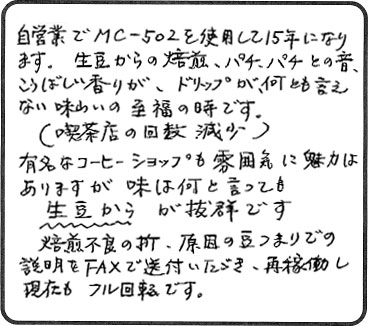 自営業でMC-502を使用して15年になり
ます。生豆からの焙煎、パチ、パチとの音、
こうばしい香りが、ドリップが、何とも言え
ない味わいの至福の時です。
(喫茶店の回数減少)
有名なコーヒーショップも雰囲気に魅力は
ありますが味は何と言っても
生豆からが抜群です
焙煎不良の折、原因の豆つまりでの
説明をFAXで送付いただき、再稼働し
現在もフル回転です。